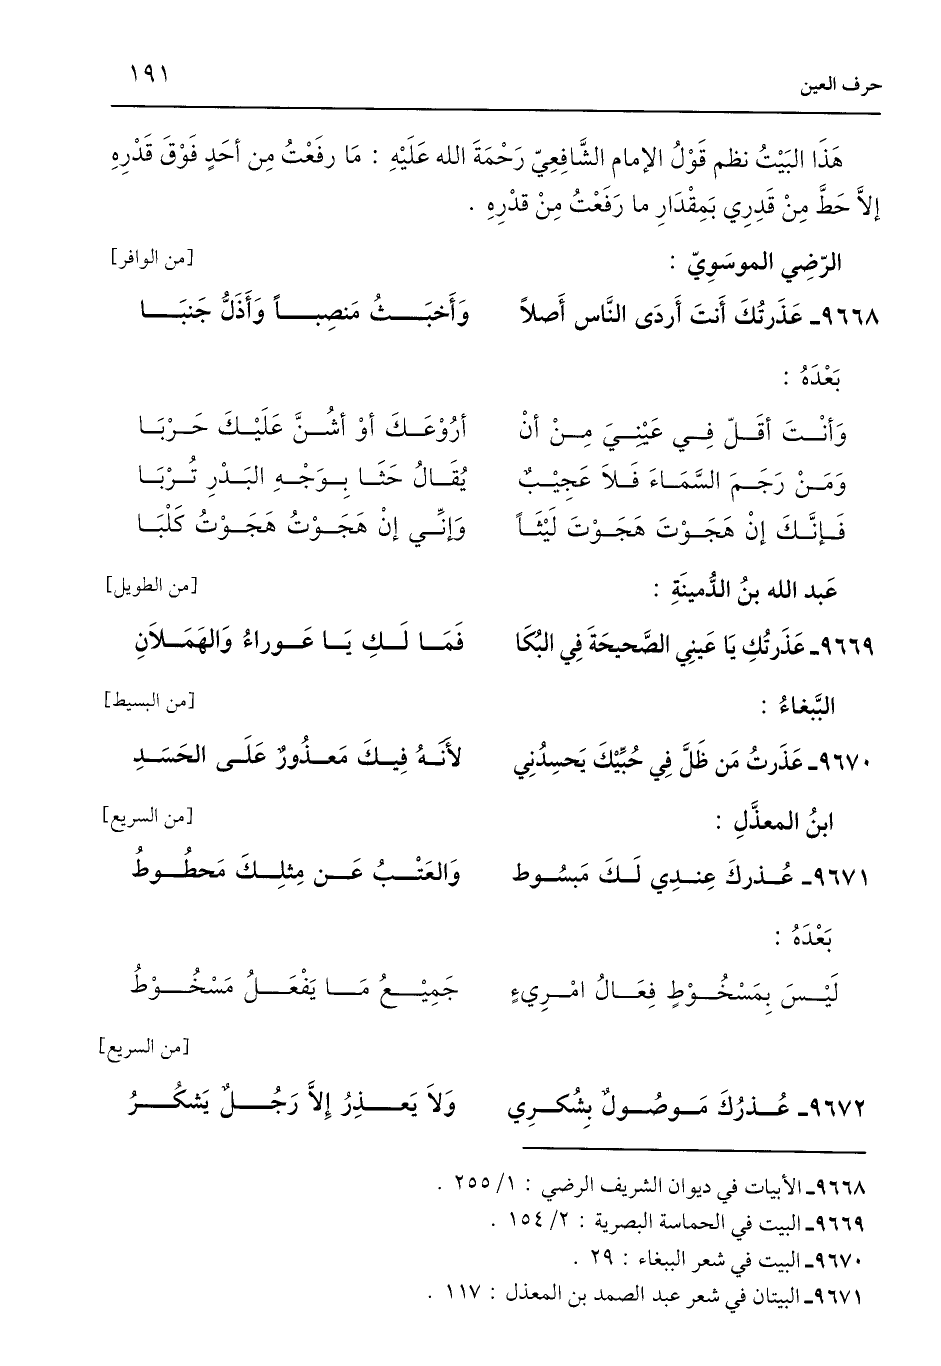 حرف العين ١٩١
هَذَا البَيْتُ نظم قَوْلُ الإمامِ الشَّافِعِيّ رَحْمَةَ الله عَلَيْهِ : مَا رفَعْتُ مِن أحَدٍ فَوْقَ قَدْرِهِ
إلاَّ حَطَّ مِنْ قَدِرِي بَمِقْدَارِ ما رَفَعْتُ مِنْ قدْرِهِ .
الرّضِي الموسَوِيّ : [من الوافر]
٩٦٦٨ـ عَذَرتُكَ أَنتَ أَردَى النَّاسِ أَصلاً وَأَخبَـــثُ مَنصِبــــاً وَأَذَلُّ جَنبَــا
بَعْدَهُ :
وَأنْـــتَ أقَــلّ فِــي عَيْنِـيَ مِــنْ أنْ أرُوْعَــكَ أوْ أشُــنَّ عَلَيْــكَ حَــرْبَـا
وَمَــنْ رَجَــمَ السَّمَـاءَ فَـلاَ عَجِيْــبٌ يُقَــالُ حَثَـا بِـوَجْـهِ البَـدْرِ تُــرْبَـا
فَــإنَّــكَ إنْ هَجَــوْتَ هَجَــوْتَ لَيْثَـاً وَإنِّـي إنْ هَجَــوْتُ هَجَـوْتُ كَلْبَـا
عَبد الله بنُ الدُّمينَةِ : [من الطويل]
٩٦٦٩ـ عَذَرتُكِ يَا عَينِي الصَّحيحَةَ فِي البُكَا فَمَــا لَــكِ يَــا عَــوراءُ وَالهَمَــلاَنِ
البَّبغاءُ : [من البسيط]
٩٦٧٠ـ عَذَرتُ مَن ظَلَّ فِي حُبِّيْكَ يَحسِدُنِي لأنَّــهُ فِيـكَ مَعـذُورٌ عَلَــى الحَسَــدِ
ابنُ المعذَّلِ : [من السريع]
٩٦٧١ـ عُــذركَ عِنــدِي لَــكَ مَبسُــوط وَالعَتْــبُ عَــن مِثلِــكَ مَحطُــوطُ
بَعْدَهُ :
لَيْــسَ بِمَسْخُــوْطٍ فِعَــالُ امْــرِيءٍ جَمِيْـــعُ مَــا يَفْعَــلُ مَسْخُــوْطُ
[من السريع]
٩٦٧٢ـ عُــذرُكَ مَــوصُــولٌ بِشُكــرِي وَلاَ يَعــذِرُ إلاَّ رَجُــلٌ يَشكُــرُ
٩٦٦٨ـ الأبيات في ديوان الشريف الرضي : ١/ ٢٥٥ .
٩٦٦٩ـ البيت في الحماسة البصرية : ٢/ ١٥٤ .
٩٦٧٠ـ البيت في شعر الببغاء : ٢٩ .
٩٦٧١ـ البيتان في شعر عبد الصمد بن المعذل : ١١٧ .